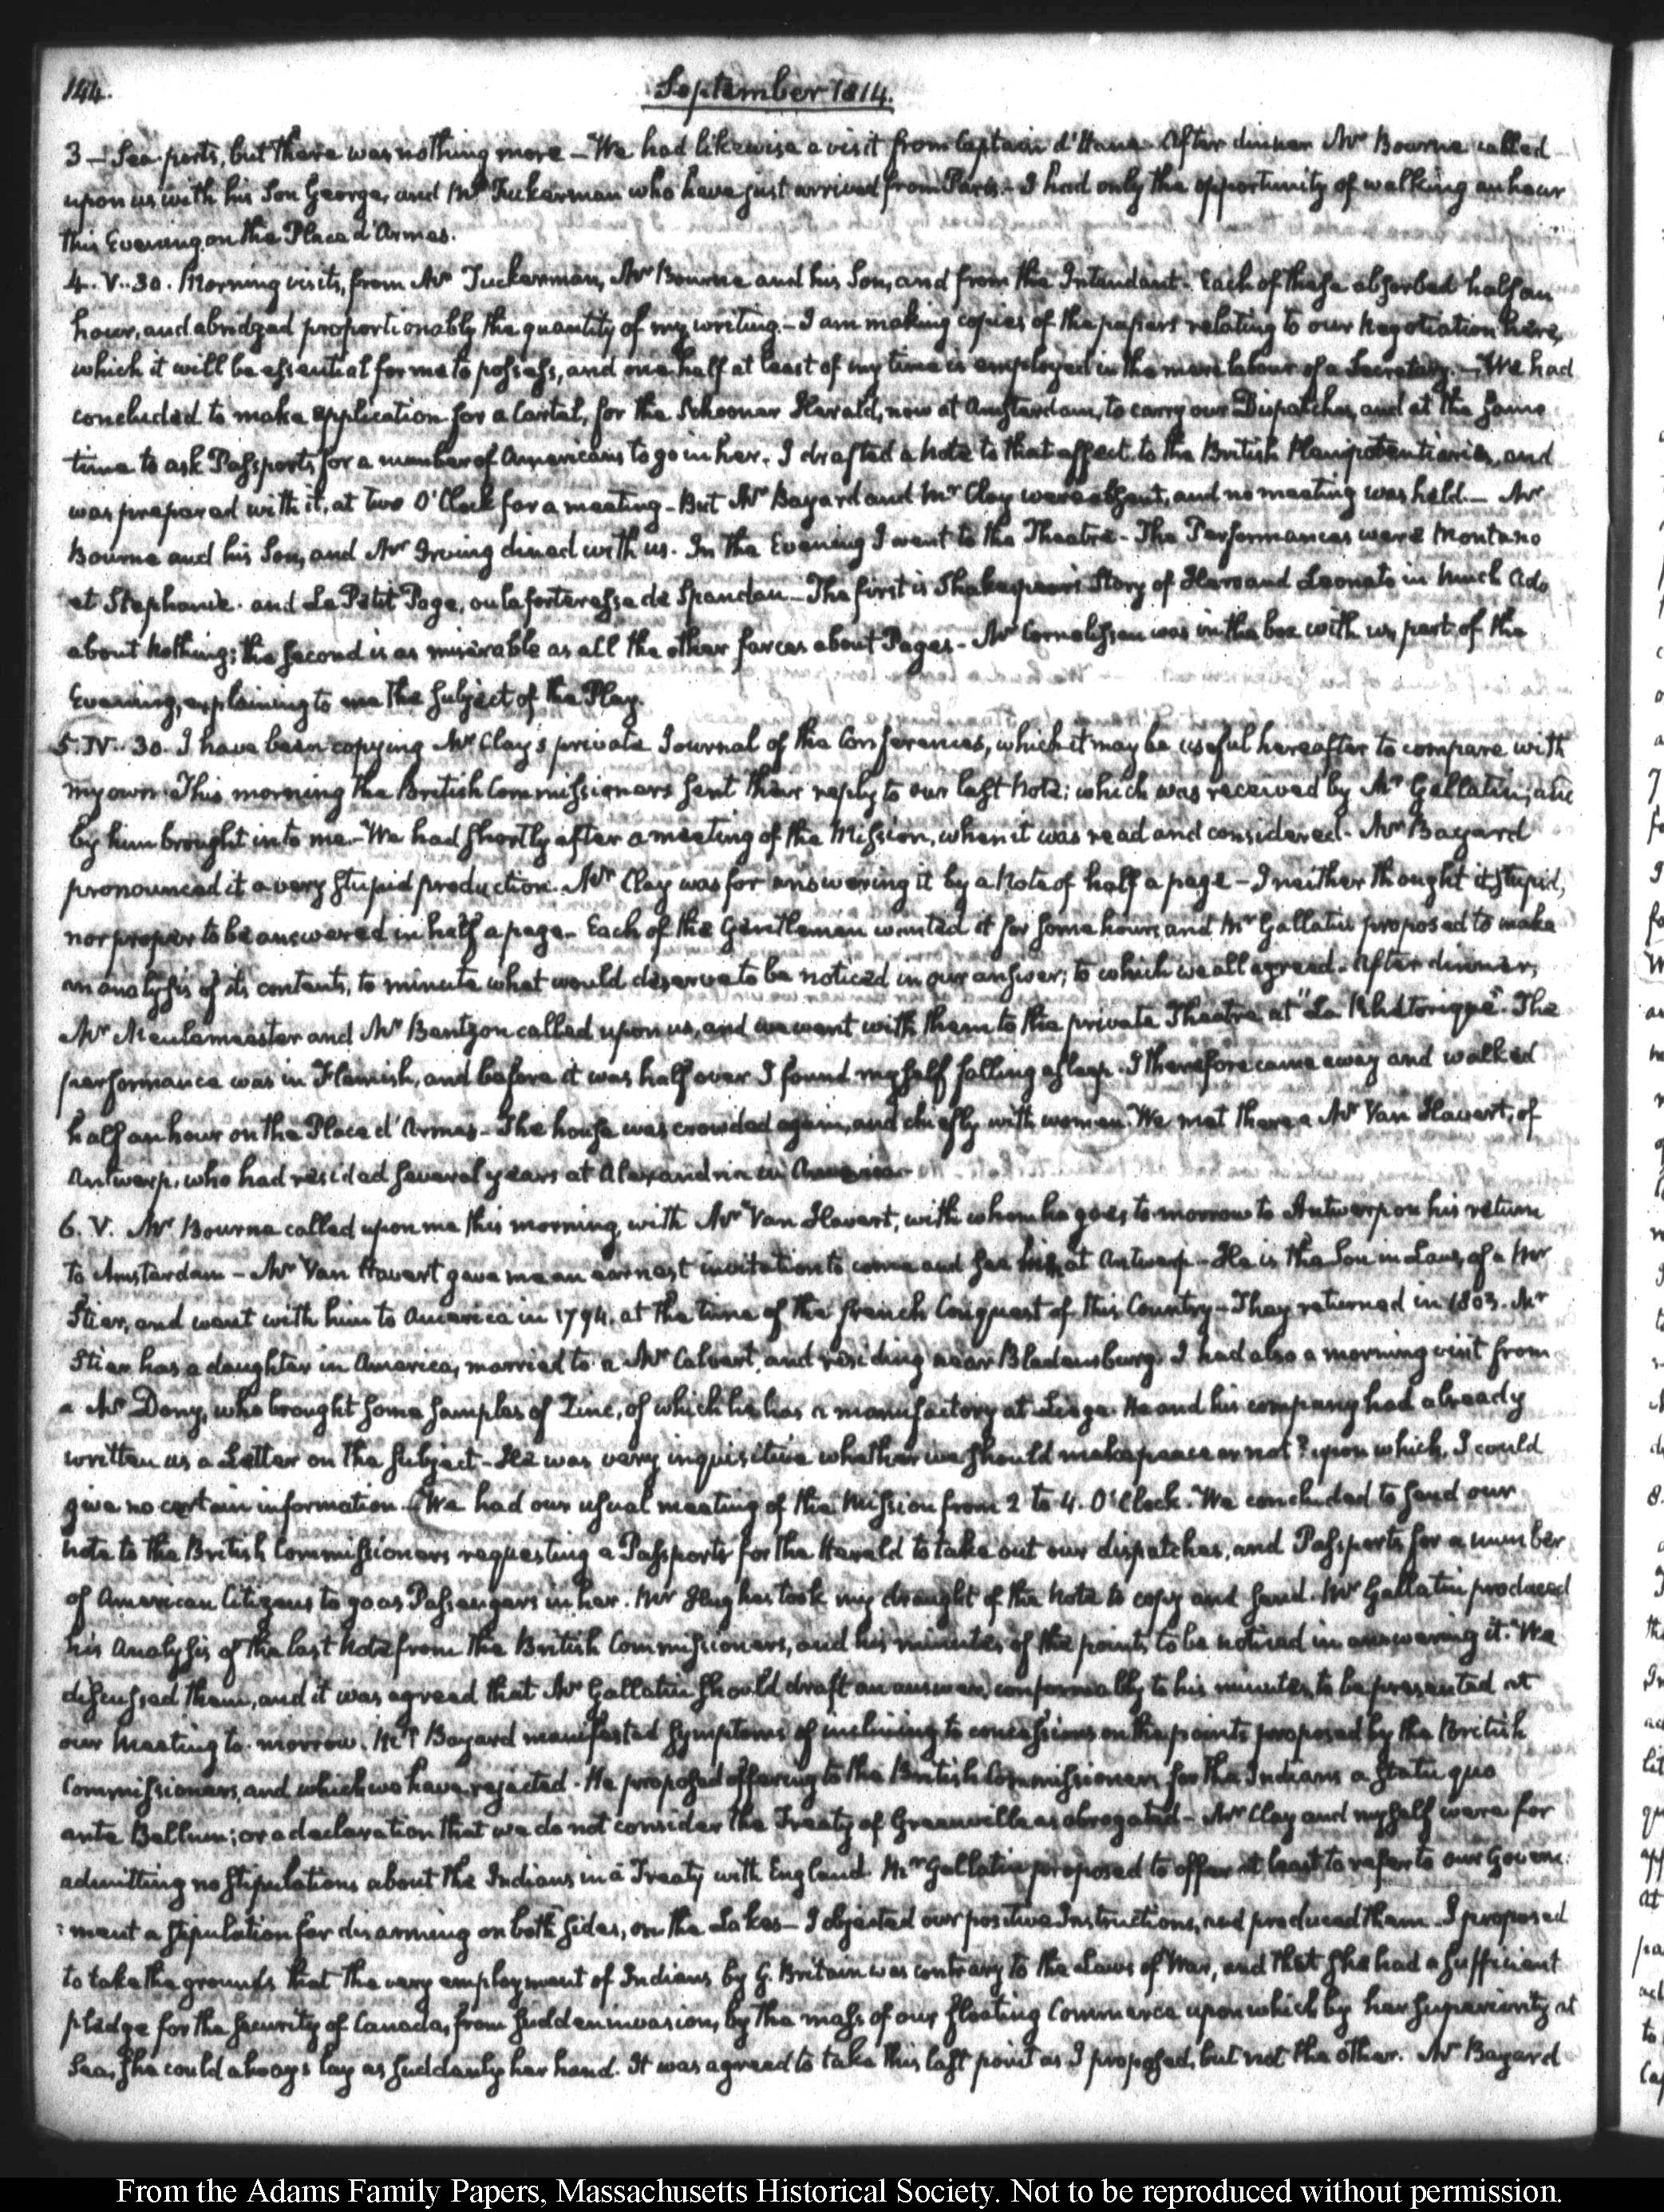 144.
September 1814.
3 — Sea-ports, but there was nothing more — We had likewise a visit from Captain d'Hane. After dinner Mr Bourne called
upon us with his Son George, and Mr Tuckerman who have just arrived from Paris. — I had only the opportunity of walking an hour
this Evening on the Place d'Armes.
4. V..30. Morning visits, from Mr Tuckerman, Mr Bourne and his Son, and from the Intendant. Each of these absorbed half an
hour, and abridged proportionably the quantity of my writing. — I am making copies of the papers relating to our Negotiation here,
which it will be essential for me to possess, and one half at least of my time is employed in the mere labour of a Secretary. — We had
concluded to make application for a Cartel, for the Schooner Herald, now at Amsterdam, to carry our Dispatches, and at the same
time to ask Passports for a number of Americans to go in her. I drafted a Note to that effect to the British Plenipotentiaries, and
was prepared with it, at two O'Clock for a meeting — But Mr Bayard and Mr Clay were absent, and no meeting was held. — Mr
Bourne and his Son, and Mr Irving dined with us. In the Evening I went to the Theatre — The Performances were Montano
et Stephanie. and Le Petit Page, ou la forteresse de Spandau — The first is Shakespear's Story of Hero and Leonato in Much Ado
about Nothing; the second is as miserable as all the other farces about Pages — Mr Cornelissen was in the box with us, part of the
Evening, explaining to me the subject of the Play.
5. IV..30. I have been copying Mr Clay's private Journal of the Conferences, which it may be useful hereafter to compare with
my own. This morning the British Commissioners sent their reply to our last Note; which was received by Mr Gallatin, and
by him brought in to me — We had shortly after a meeting of the Mission, when it was read and considered. Mr Bayard
pronounced it a very stupid production. Mr Clay was for answering it by a Note of half a page — I neither thought it stupid,
nor proper to be answered in half a page. Each of the Gentlemen wanted it for some hours, and Mr Gallatin proposed to make
an analysis of its contents, to minute what would deserve to be noticed in our answer; to which we all agreed. After dinner,
Mr Meulemeester and Mr Bentzon called upon us, and we went with them to the private Theatre at "La Rhétorique". The
performance was in Flemish, and before it was half over I found myself falling asleep. I therefore came away and walked
half an hour on the Place d'Armes — The house was crowded again, and chiefly with women. We met there a Mr Van Havert, of
Antwerp, who had resided several years at Alexandria in America.
6. V. Mr Bourne called upon me this morning, with Mr Van Havert, with whom he goes to-morrow to Antwerp on his return
to Amsterdam — Mr Van Havert gave me an earnest invitation to come and see him at Antwerp — He is the Son in Law, of a Mr
Stier, and went with him to America in 1794. at the time of the French Conquest of this Country — They returned in 1803. Mr
Stier has a daughter in America, married to a Mr Calvert, and residing near Bladensburg. I had also a morning visit from
a Mr Dony, who brought some samples of Zinc, of which he has a manufactory at Liege. He and his company had already
written us a Letter on the subject — He was very inquisitive whether we should make peace or not? upon which, I could
give no certain information. We had our usual meeting of the Mission from 2 to 4. O'Clock. We concluded to send our
Note to the British Commissioners requesting a Passports for the Herald to take out our dispatches, and Passports for a number
of American Citizens to go as Passengers in her. Mr Hughes took my draught of the Note to copy and send. Mr Gallatin produced
his Analysis of the last Note from the British Commissioners, and his minutes of the points to be noticed in answering it. We
discussed them, and it was agreed that Mr Gallatin should draft an answer, conformably to his minutes, to be presented at
our Meeting to-morrow. Mr Bayard manifested symptoms of inclining to concessions on the points proposed by the British
Commissioners, and which we have rejected. He proposed offering to the British Commissioners for the Indians a Statu quo
ante Bellum; or a declaration that we do not consider the Treaty of Greenville as abrogated — Mr Clay and myself were for
admitting no stipulations about the Indians in a Treaty with England. Mr Gallatin proposed to offer at least to refer to our Govern:
:ment a stipulation for disarming on both sides, on the Lakes — I objected our positive Instructions, and produced them. I proposed
to take the grounds that the very employment of Indians by G. Britain was contrary to the Laws of War, and that she had a sufficient
pledge for the security of Canada, from sudden invasion, by the mass of our floating Commerce upon which by her superiority at
Sea, she could always lay as suddenly her hand. It was agreed to take this last point as I proposed, but not the other. Mr Bayard
From the Adams Family Papers, Massachusetts Historical Society. Not to be reproduced without permission.